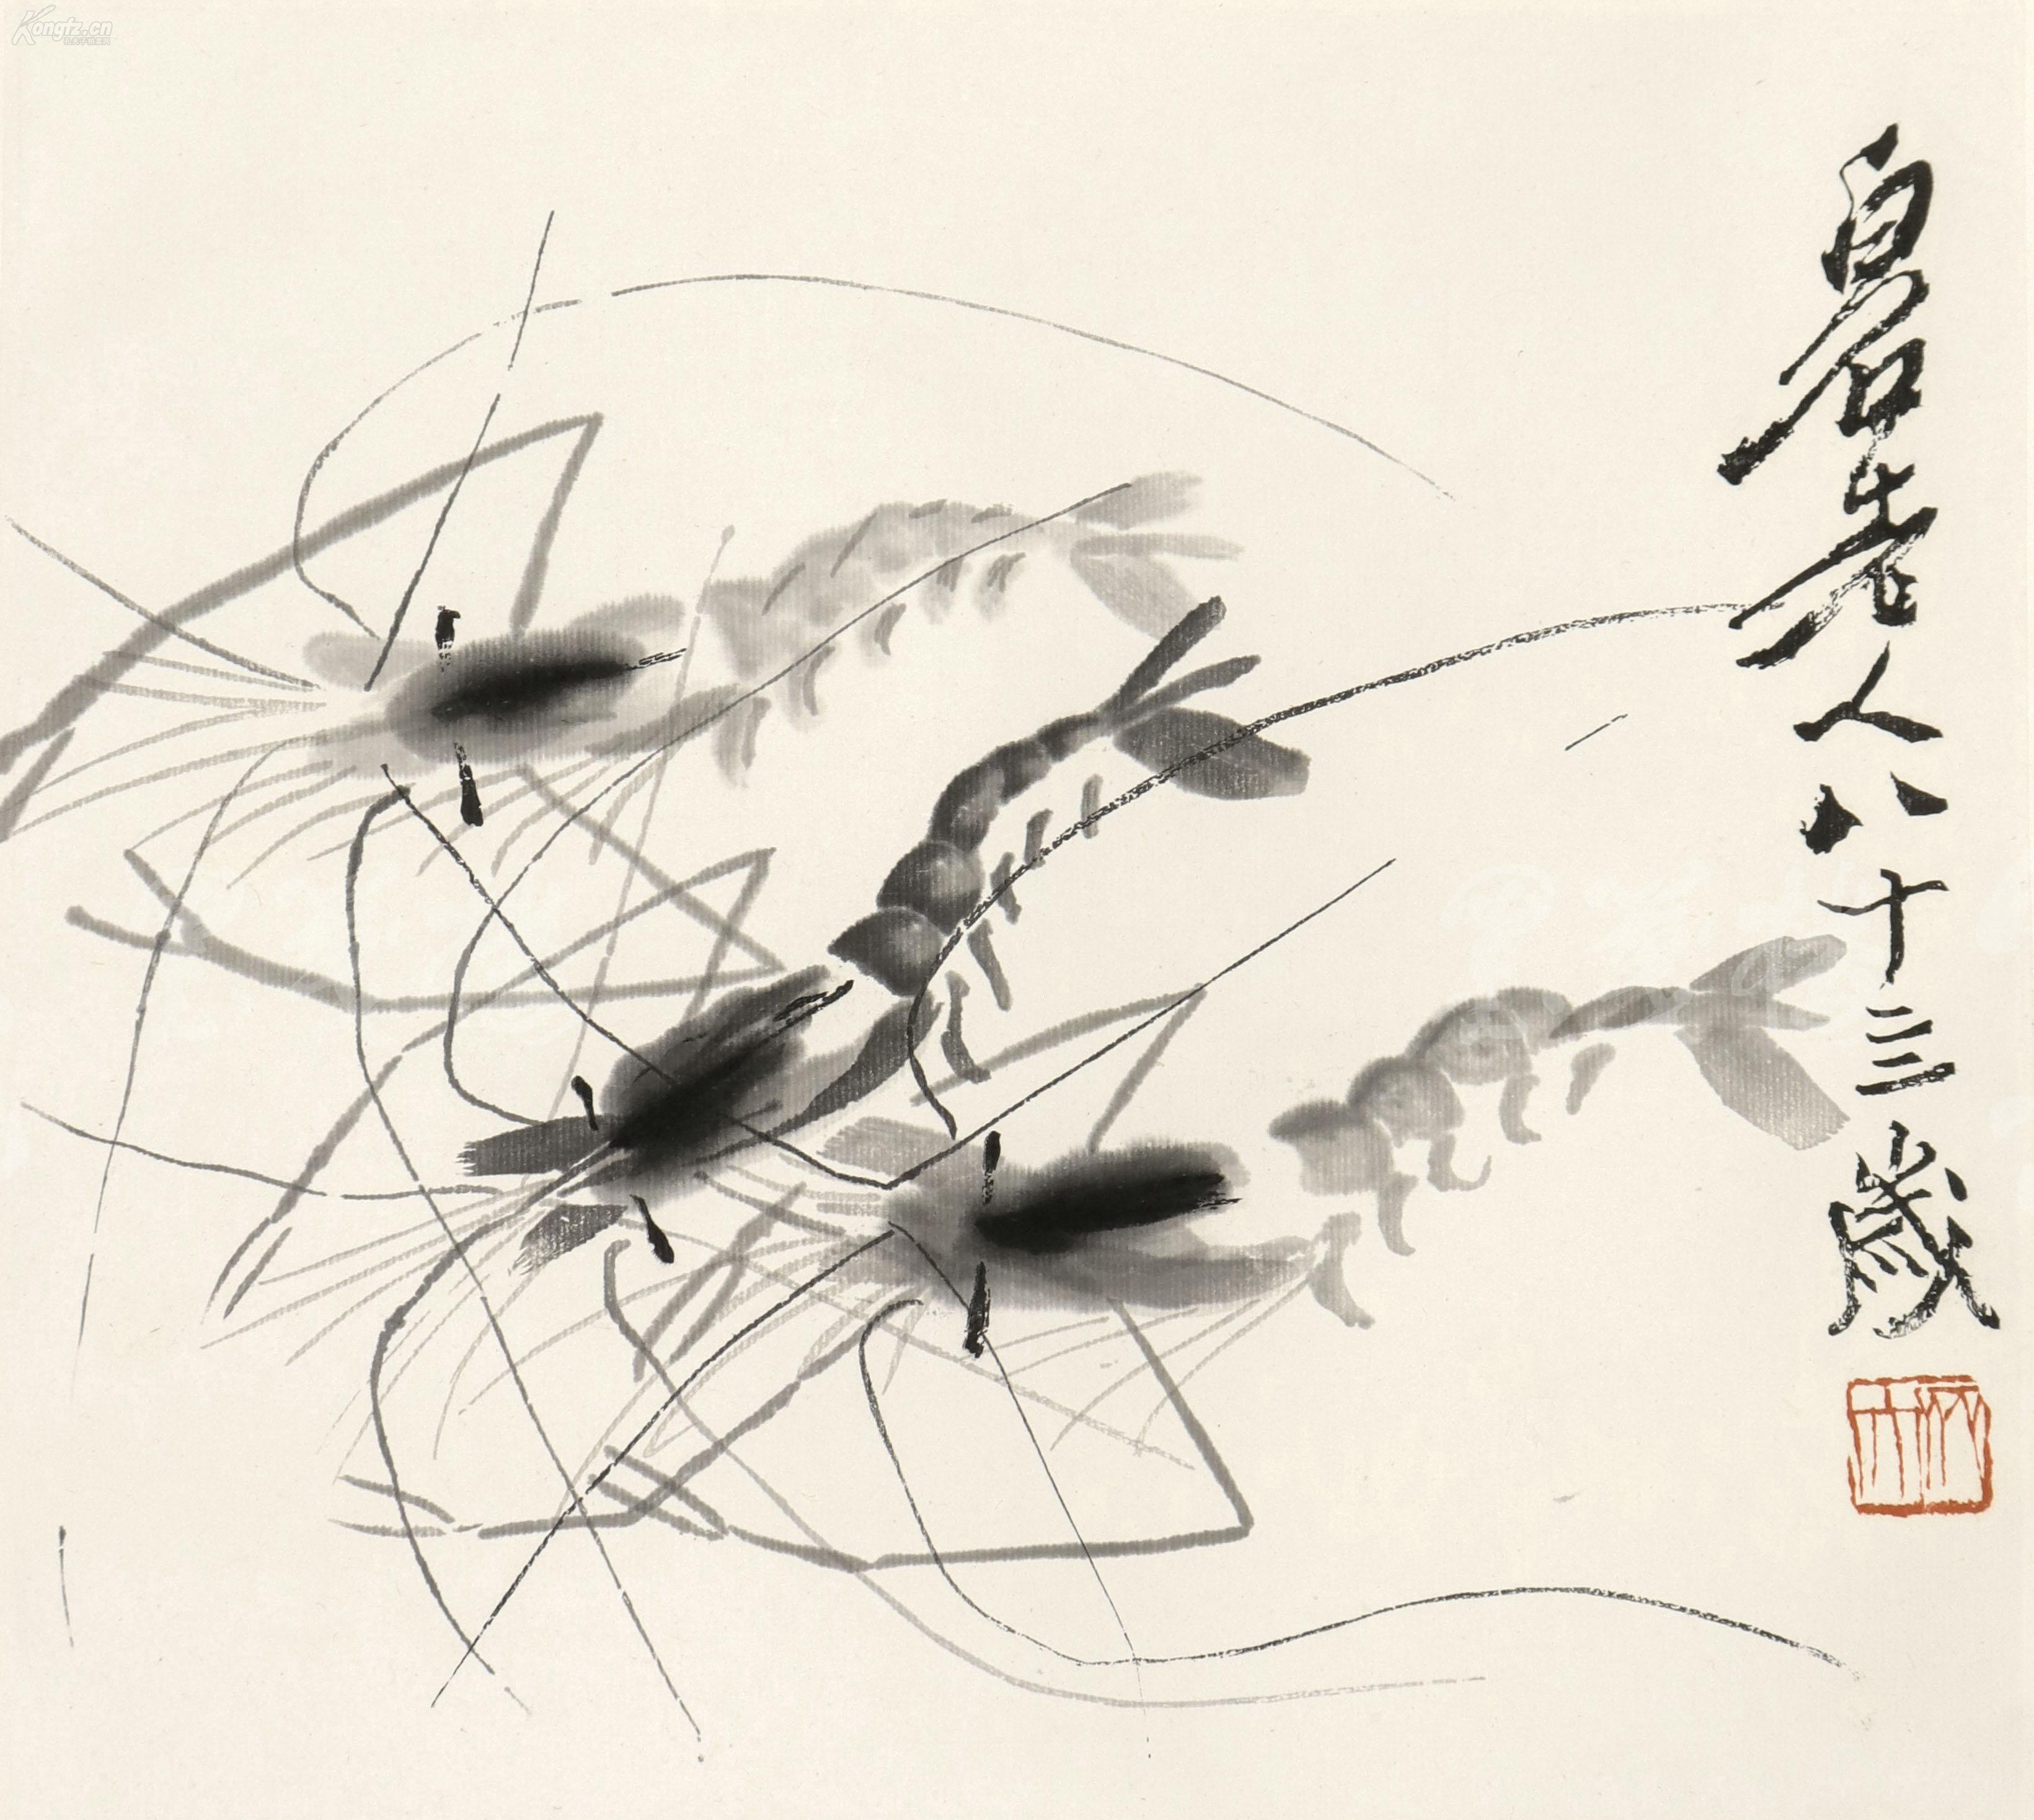 Kongfz.cn
白石老人八十三歲
木人